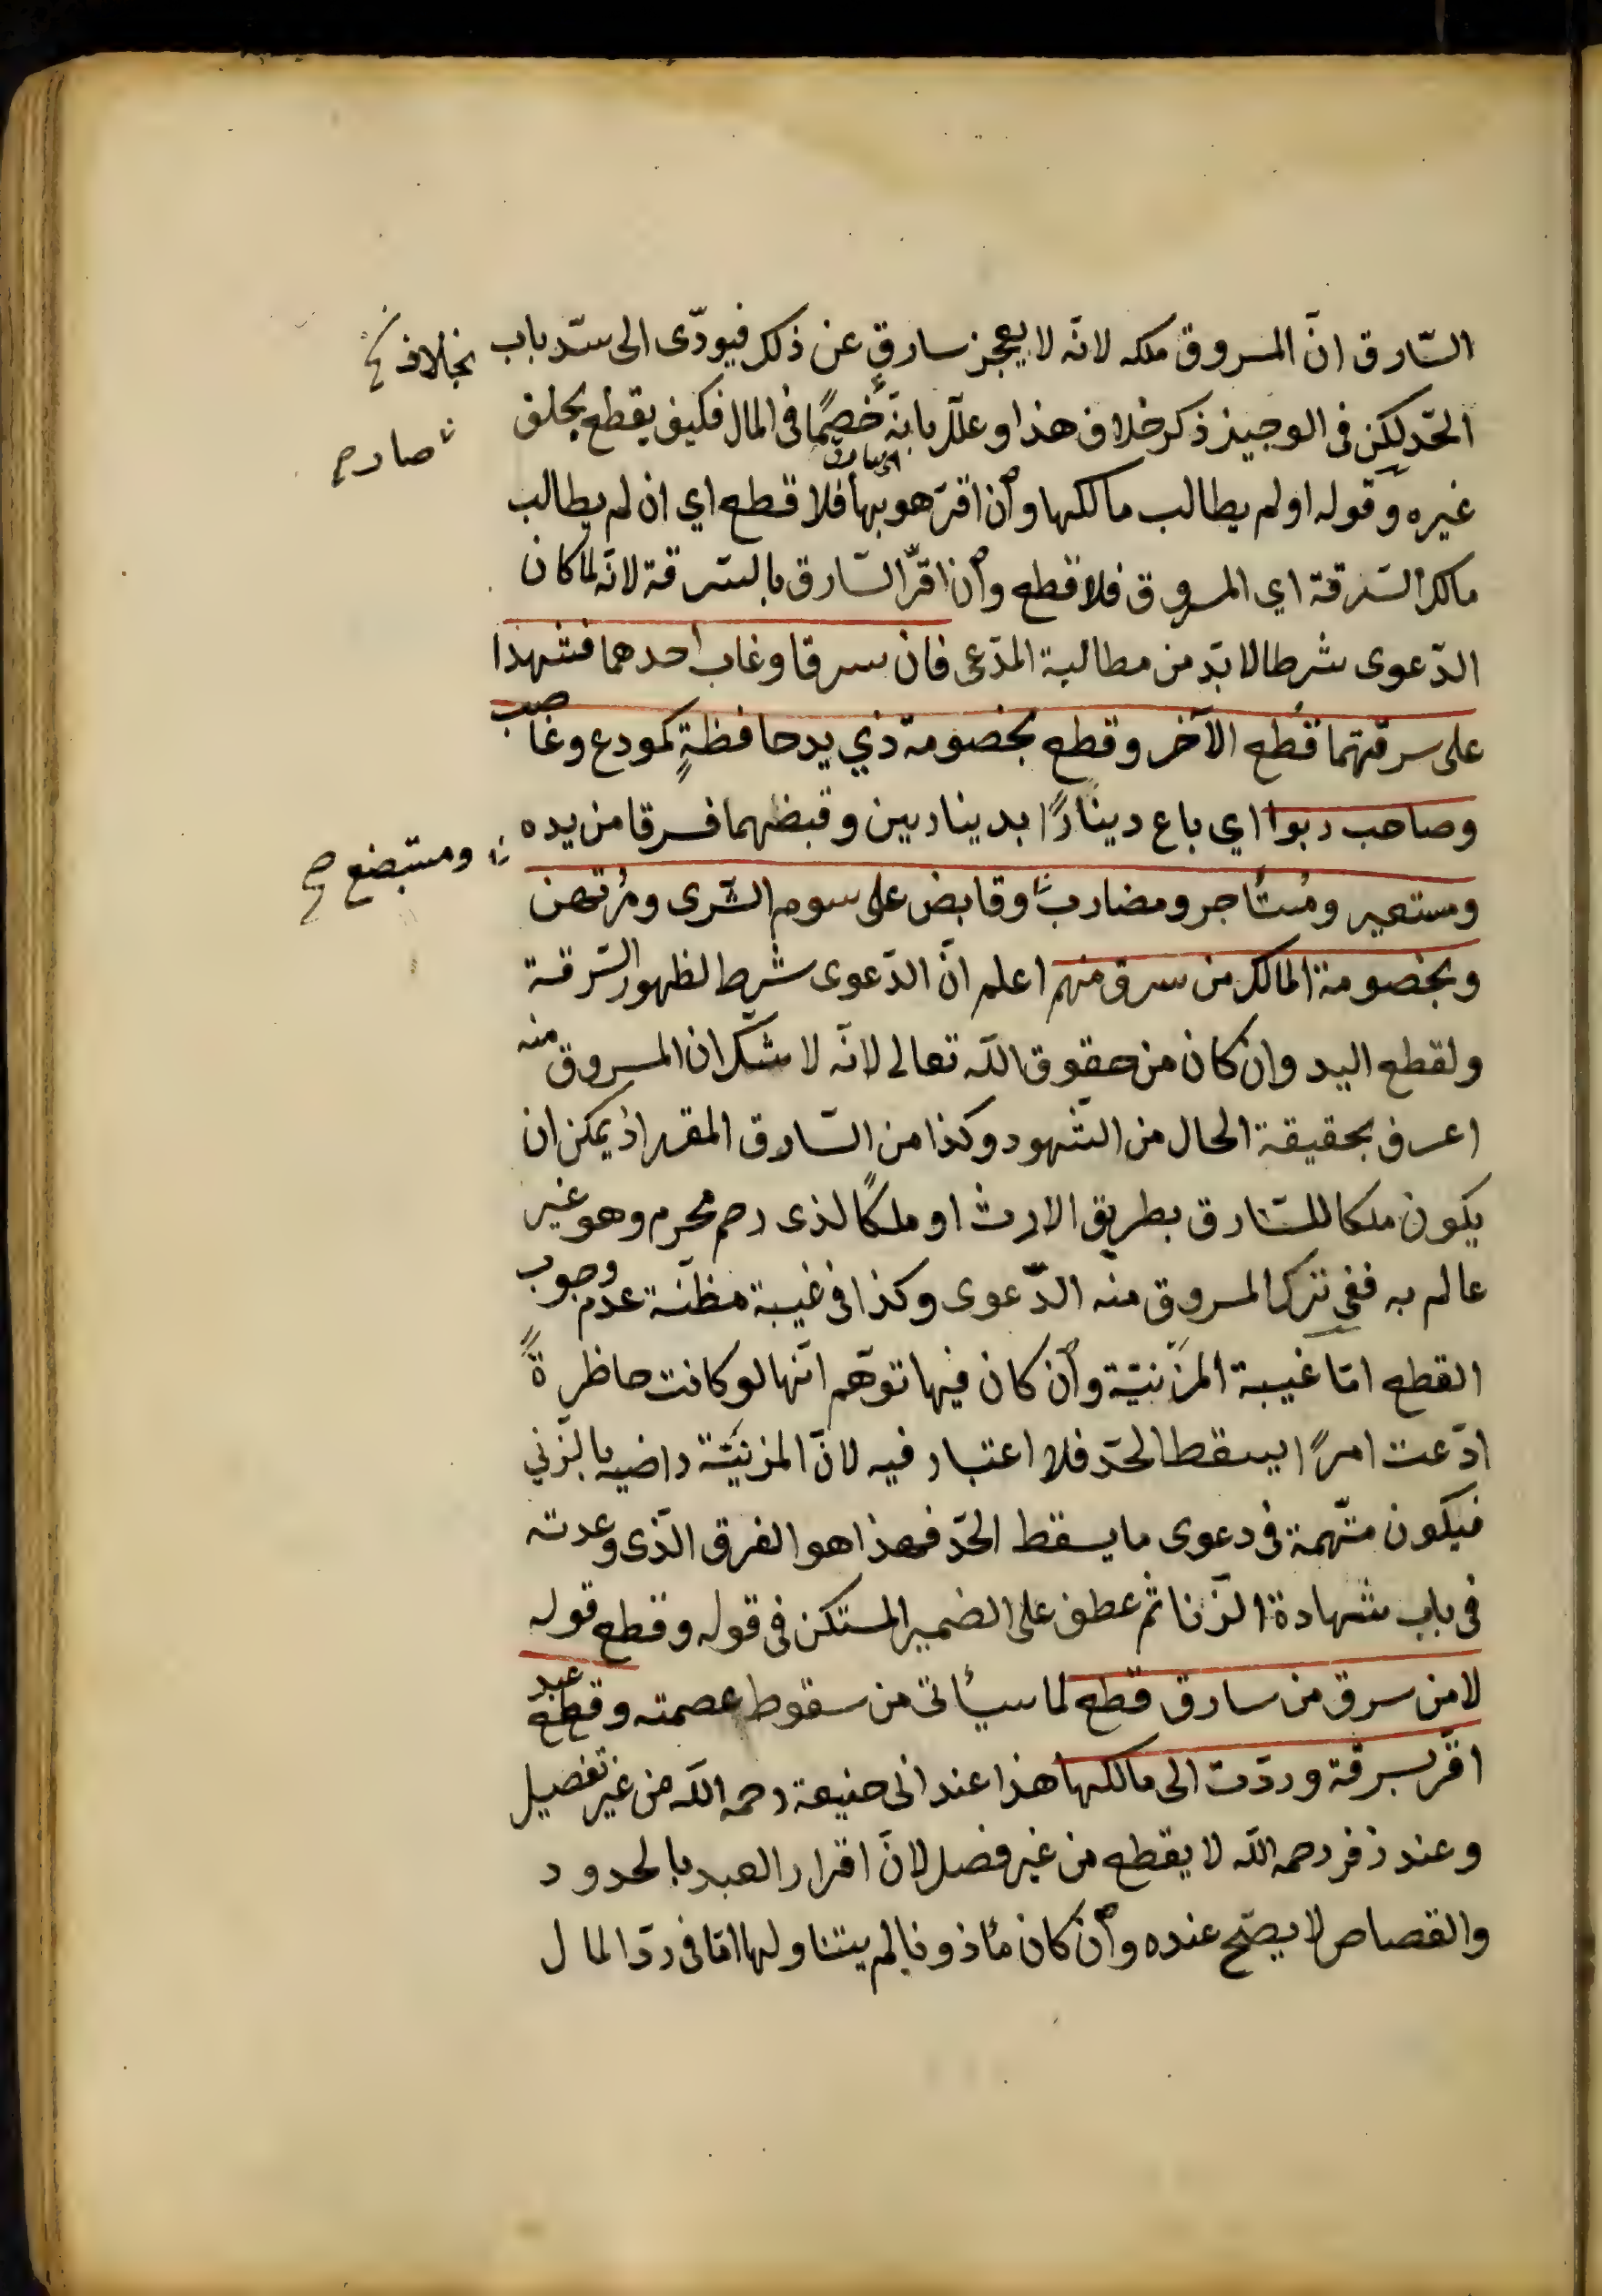 السّارق انّ المسروق ملكه لانّه لا يعجز سارق عن ذلك فيودّى الى سدّ باب
بخلاف
الحدّ لكن فى الوجيز ذكر خلاف هذا وعلّل بانّه خصمًا فى المال فكيف يقطع بحلف
صار صح
غيره وقوله او لم يطالب مالكها وأن اقرّ هو بها فلا قطع اي ان لم يطالب
اى سارق
مالك السّرقة اي المسروق فلا قطع وأن اقرّ السّارق بالسّرقة لانّه لما كان
الدّعوى شرطا لا بدّ من مطالبة المدّعى فان سرقا وغاب احدهما فشهدا
على سرقتهما قُطع الآخر وقطع بخصومة ذي يد حافظةٍ كمودع وغاصب
وصاحب ربوا اي باع دينارًا بدينارين وقبضهما فسرقا من يده
ومستبضع صح
ومستعير ومُستأجر ومضارب وقابض على سوم الشّرى ومُرتهن
وبخصومة المالك من سرق منهم اعلم انّ الدّعوى شرط لظهور السّرقة
ولقطع اليد وان كان من حقوق اللّه تعالى لانّه لا شكّ ان المسروق منه
اعرف بحقيقة الحال من الشّهود وكذا من السّارق المقر اذ يمكن ان
يكون ملكا للسّارق بطريق الارث او ملكًا لذى رحم محرم وهو غير
عالم به ففي ترك المسروق منه الدّعوى وكذا فى غيبة مظنّة عدم وجوب
القطع امّا غيبة المزنيّة وأن كان فيها توهّم انّها لو كانت حاظرةً
ادّعت امرًا يسقط الحدّ فلا اعتبار فيه لانّ المزنيّة راضيه بالزّني
فيكون متّهمة فى دعوى ما يسقط الحدّ فهذا هو الفرق الّذى وعدته
فى باب شهادة الزّنا ثم عطف على الضمير المستكن فى قوله وقطع قوله
لا من سرق من سارق قطع لما سيأتى من سقوط عصمته وقطع عبد
اقرّ بسرقة وردّت الى مالكها هذا عند ابى حنيفة رحمه اللّه من غير تفصيل
وعند زفر رحمه اللّه لا يقطع من غير فصل لانّ اقرار العبد بالحدود
والقصاص لا يصّح عنده وأن كان مأذونا لم يتناولها امّا فى ردّ المال